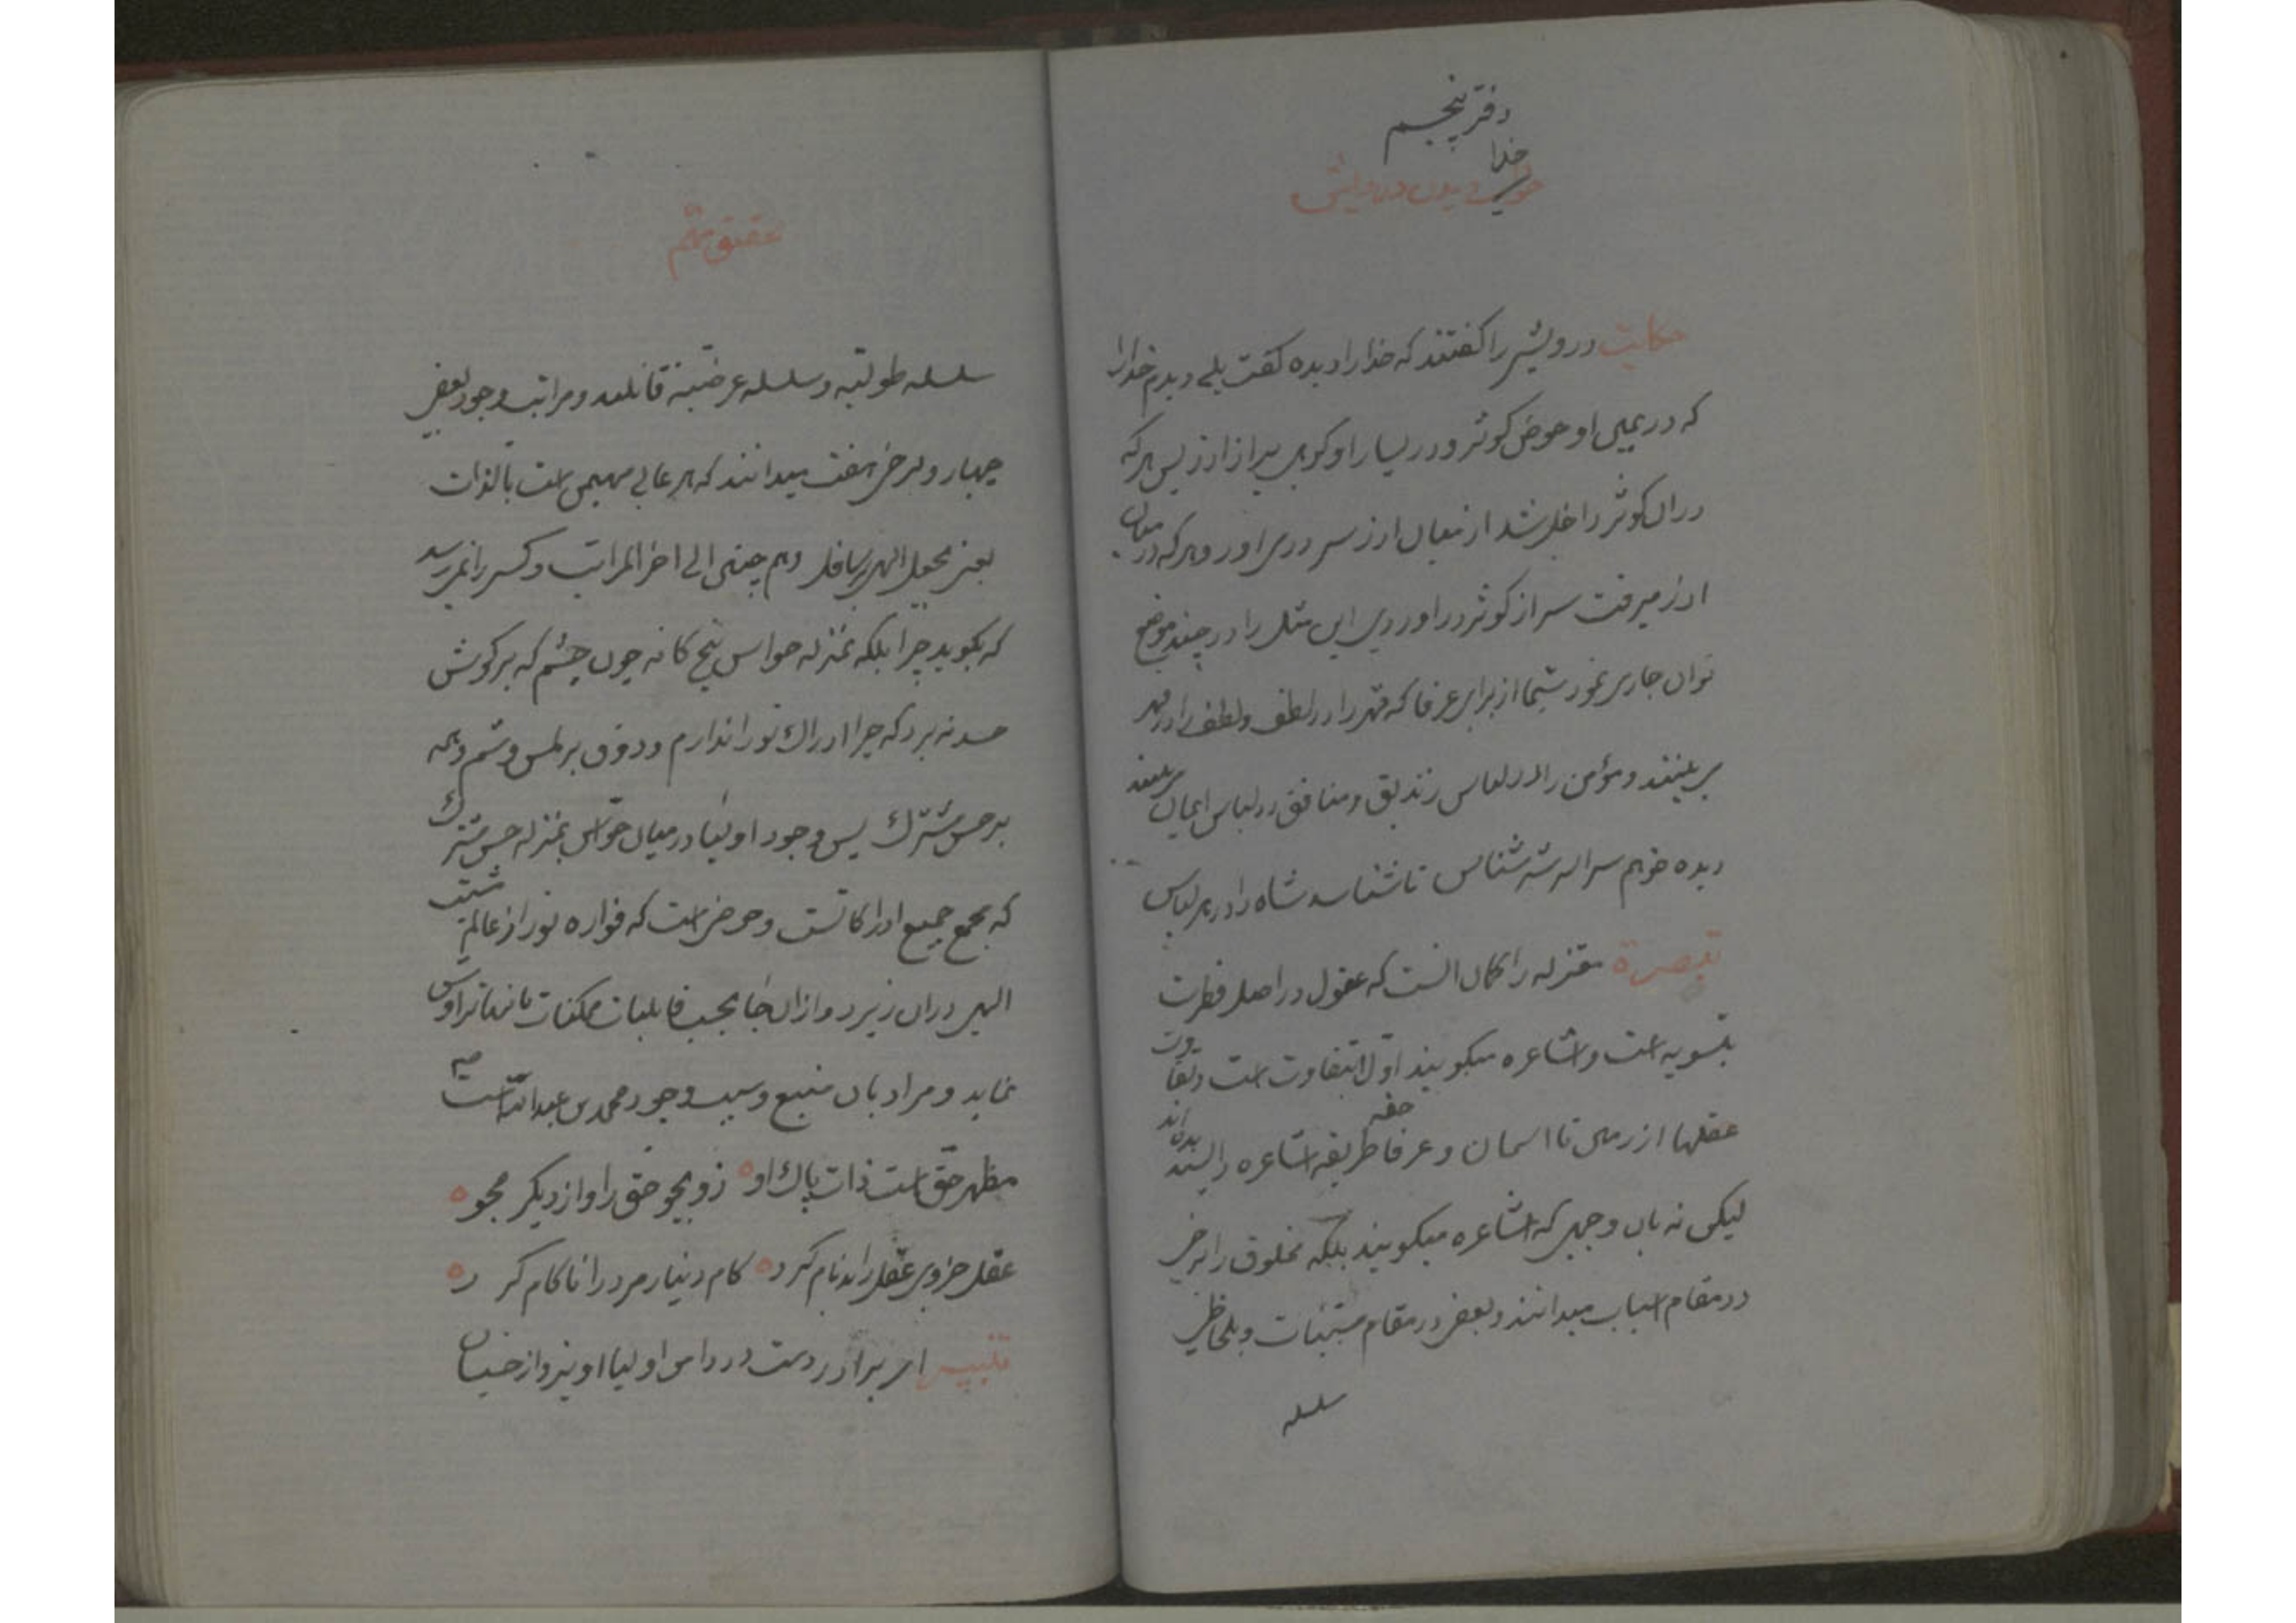 دفتر پنجم
خدا
خواب دیدن درویش
حکایت درویشی را گفتند که خدا را دیده گفت بلی دیدم خدا را
که در یمین او حوض کوثر و در یسار او کوهی پر از آذر پس هرکه
در آن کوثر داخل شد از میان آذر سر در می آورد و هرکه در میان
آذر میرفت سر از کوثر در آوردی این مثل را در چند موضع
توان جاری نمود سیما از برای عرفا که قهر را در لطف و لطف را در قهر
می بینند و مؤمن را در لباس زندیق و منافق در لباس ایمان می بینند
دیده خواهم سراله شه شناس تا شناسد شاه را در هر لباس
تبصرة معتزله را گمان آنست که عقول در اصل فطرت
بتسویه است و اشاعره میگویند اول بتفاوت است و تفاوت
عقلها از زمین تا آسمان و عرفا طریقه حقه اشاعره را پسندیده اند
لیکن نه بآن وجهی که اشاعره میگویند بلکه مخلوق را برخی
در مقام اسباب میدانند و بعضی در مقام مسببات و بلحاظی
سلسله
تحقیق مهم
سلسله طولیه و سلسله عرضیه قائلند و مراتب وجود بعضی
چهار و برخی هفت میدانند که هر عالی مهیمن است بالذات
یعنی بجعل الهی بر سافل و هم چنین الی آخر المراتب و کسی را نمیرسد
که بگوید چرا بلکه بمنزله حواس پنج گانه چون چشم که بر گوش
حسد نه برد که چرا ادراک نور را ندارم و ذوق بر لمس و شم و همه
بر حس مشترک پس وجود اولیا در میان حواس بمنزله حس مشترک
که مجمع جمیع ادراکاتست و حوضی است که فواره نور از عالم مشیت
الهی در آن ریزد و از آن جا بحسب قابلیات ممکنات بآنها تراوش
نماید و مراد بآن منبع و سبب وجود محمد بن عبدالله است ص
مظهر حق است ذات پاک او ه زو بجو حق را و از دیگر مجو ه
عقل جزوی عقل را بدنام کرد ه کام دنیا مرد را ناکام کرد ه
تنبیه ای برادر دست در دامن اولیا آویز و از خسان